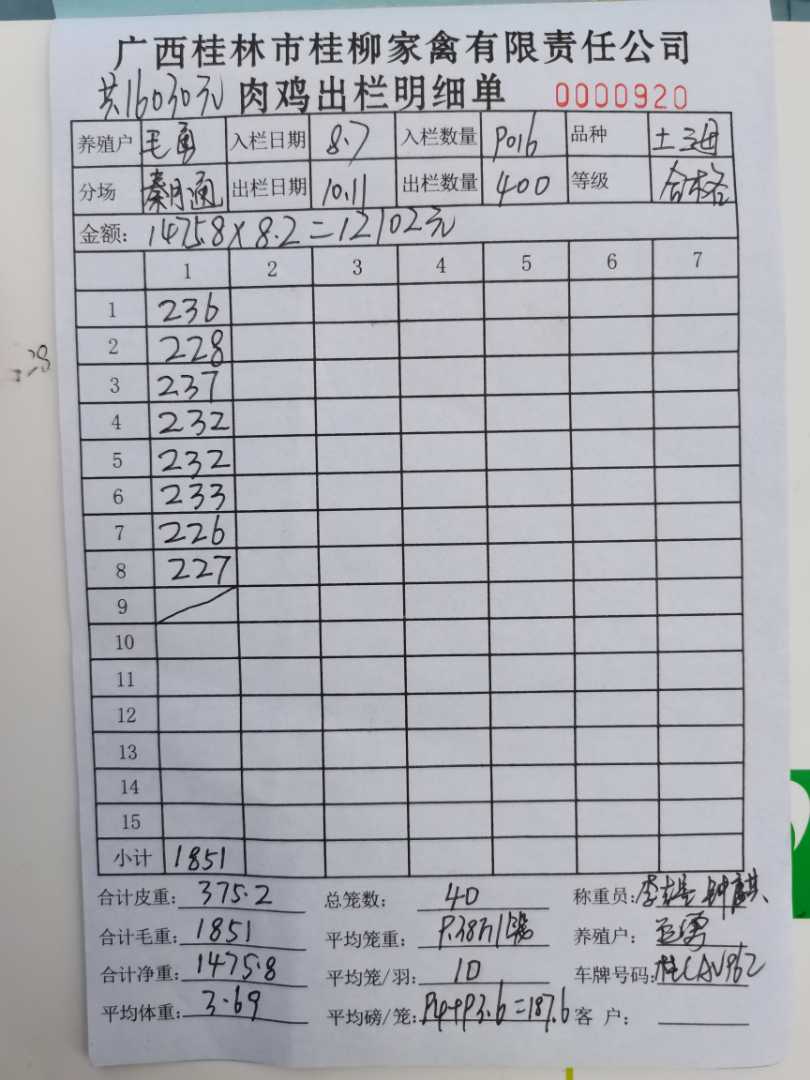 广西桂林市桂柳家禽有限责任公司
共16030元 肉鸡出栏明细单 0000920
养殖户 毛勇 入栏日期 8.7 入栏数量 9016 品种 土三
分场 秦月通 出栏日期 10.11 出栏数量 400 等级 合格
金额: 1475.8×8.2=12102元
1 2 3 4 5 6 7
1 236
2 228
3 237
4 232
5 232
6 233
7 226
8 227
9
10
11
12
13
14
15
小计 1851
合计皮重: 375.2 总笼数: 40 称重员:
合计毛重: 1851 平均笼重: 9.38 养殖户:
合计净重: 1475.8 平均笼/羽: 10 车牌号码: 桂CAV962
平均体重: 3.69 平均磅/笼: 94+93.6=187.6 客 户: